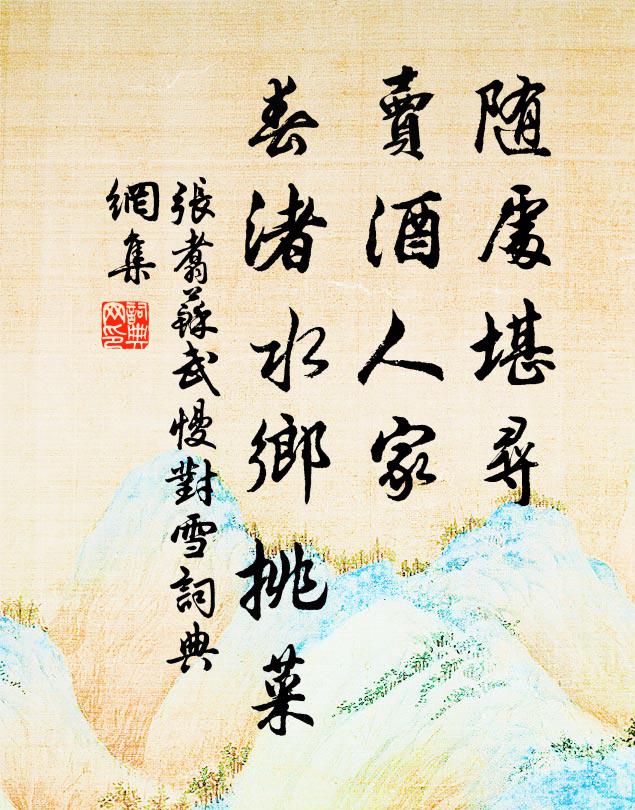 随處堪尋
賣酒人家
春渚水鄉挑菜
張翥蘇武慢對雪詞典
網集
詞典
网印